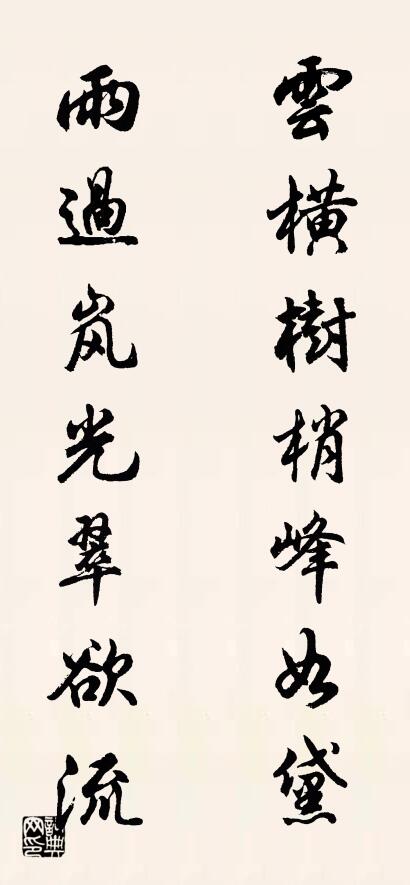 雲橫樹梢峰如黛
雨過岚光翠欲流